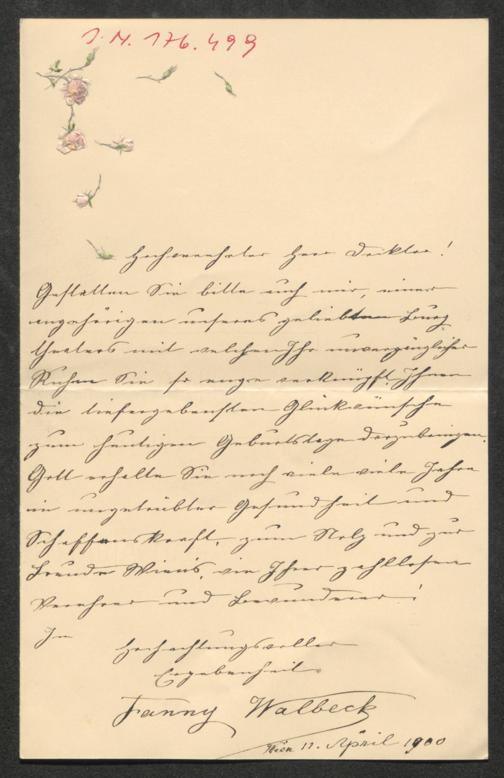 J. N. 176.499
Hochverehrter Herr Doktor!
Gestatten Sie bitte auch mir, einer
angehörigen unseres geliebten Burg-
theaters mit welchem Ihr unvergänglicher
Ruhm Sie so enge verknüpft, Ihnen
die tiefergebensten Glückwünsche
zum heutigen Geburtstage darzubringen.
Gott erhalte Sie noch viele viele Jahre
in ungetrübter Gesundheit und
Schaffenskraft, zum Stolz und zur
Freude Wien's, wie Ihrer zahllosen
Verehrer und Bewunderer!
In
hochachtungsvoller
Ergebenheit
Fanny Walbeck
Wien 11. April 1900